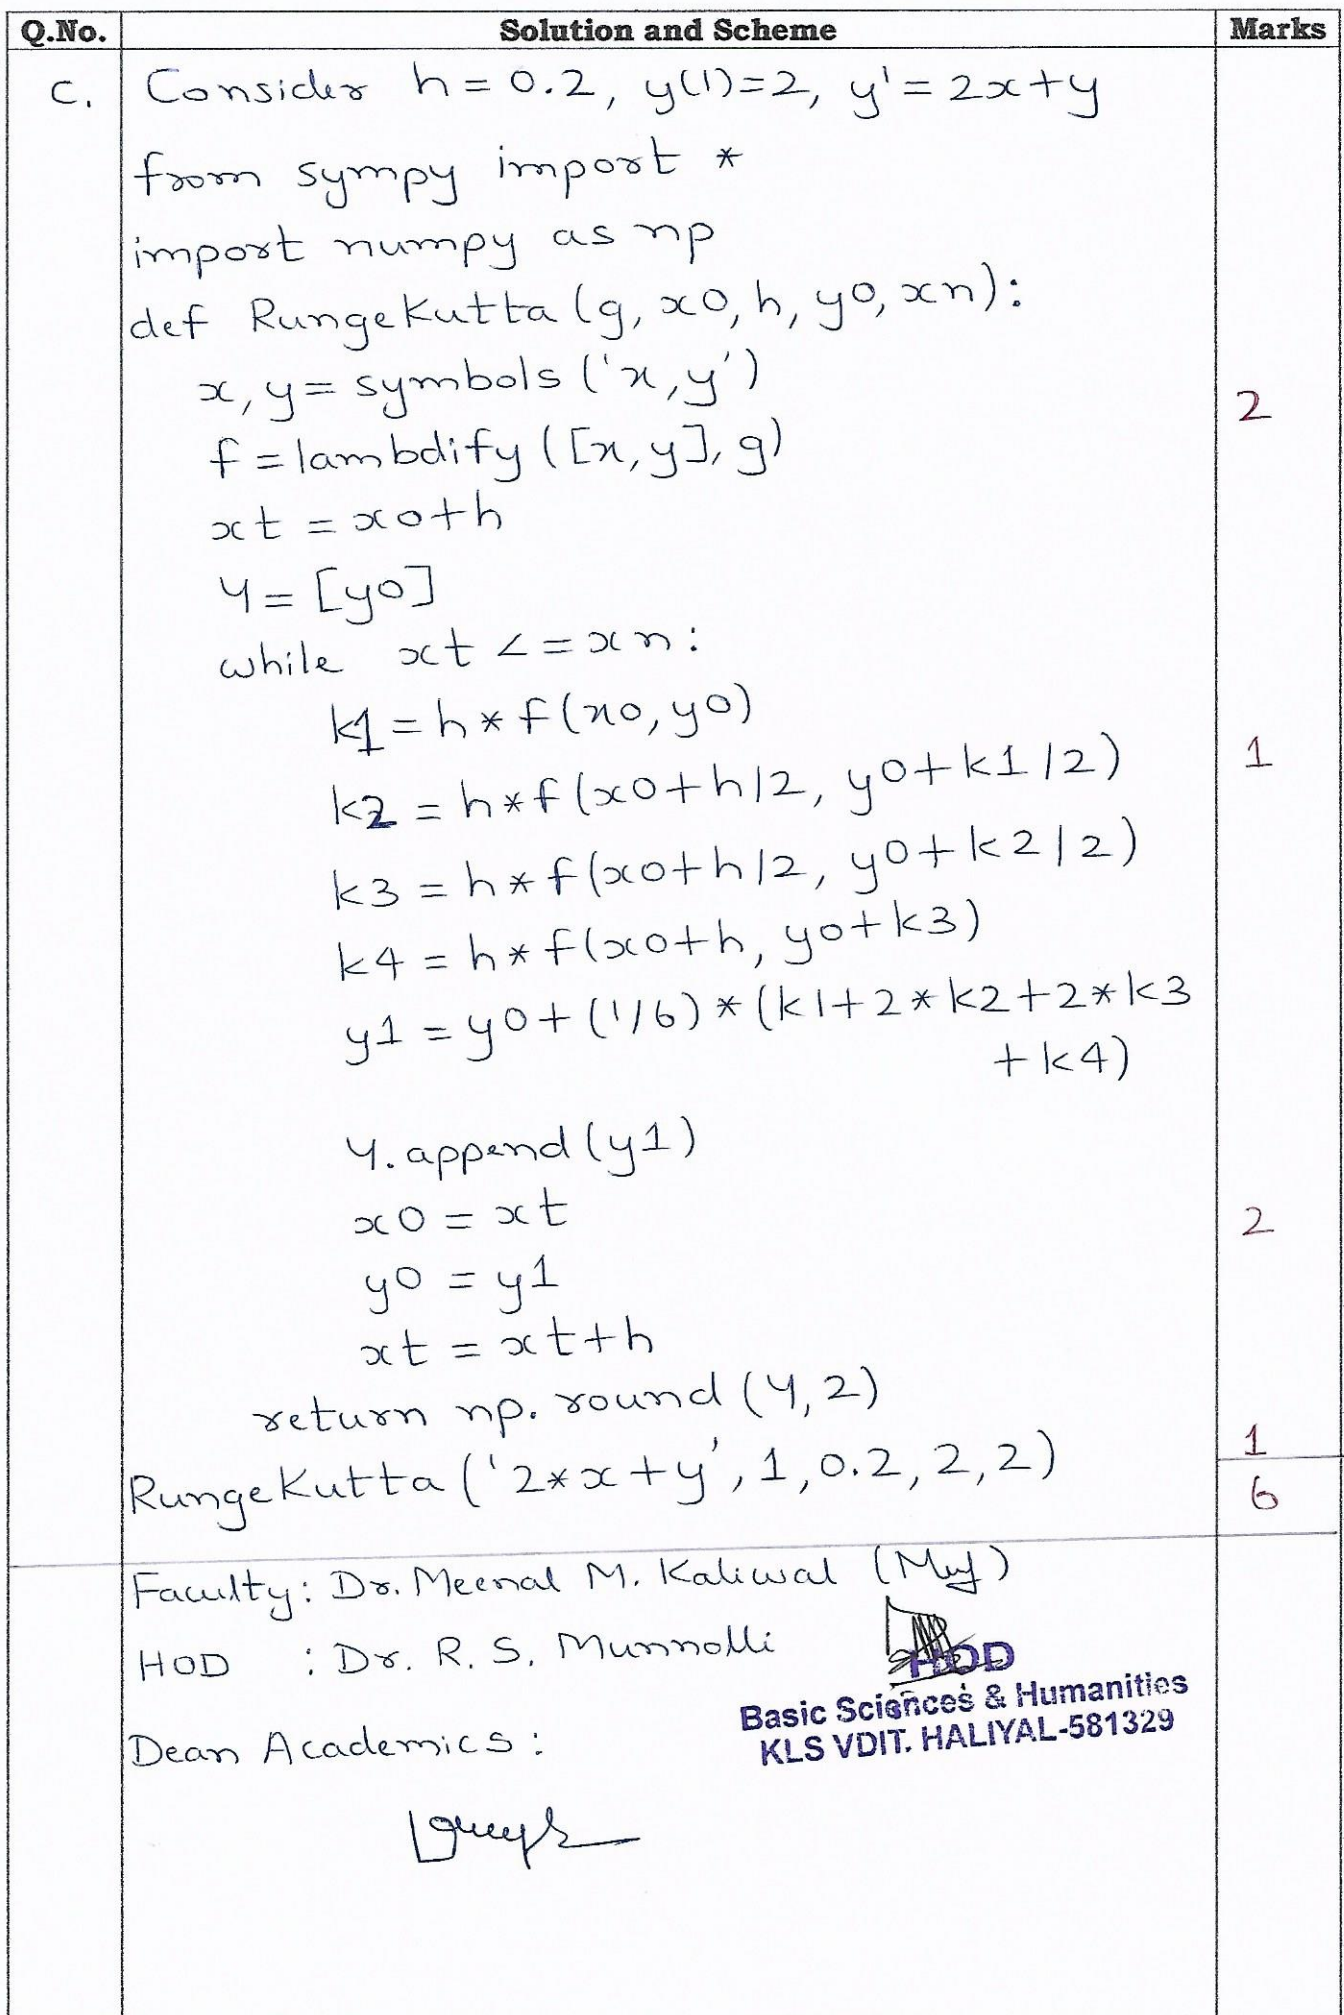 Q.No. Solution and Scheme Marks
C. Consider h = 0.2, y(1)=2, y' = 2x+y
from sympy import *
import numpy as np
def RungeKutta (g, x0, h, y0, xn):
x, y = symbols ('x,y')
2
f = lambdify ([x,y], g)
xt = x0+h
Y = [y0]
while xt <= xn:
k1 = h*f(x0,y0)
1
k2 = h*f(x0+h/2, y0+k1/2)
k3 = h*f(x0+h/2, y0+k2/2)
k4 = h*f(x0+h, y0+k3)
y1 = y0+(1/6)*(k1+2*k2+2*k3
+k4)
Y.append(y1)
x0 = xt
2
y0 = y1
xt = xt+h
return np.round(Y,2)
1
RungeKutta('2*x+y', 1, 0.2, 2, 2)
6
Faculty: Dr. Meenal M. Kaliwal
HOD : Dr. R. S. Munnolli
HOD
Basic Sciences & Humanities
KLS VDIT. HALIYAL-581329
Dean Academics :